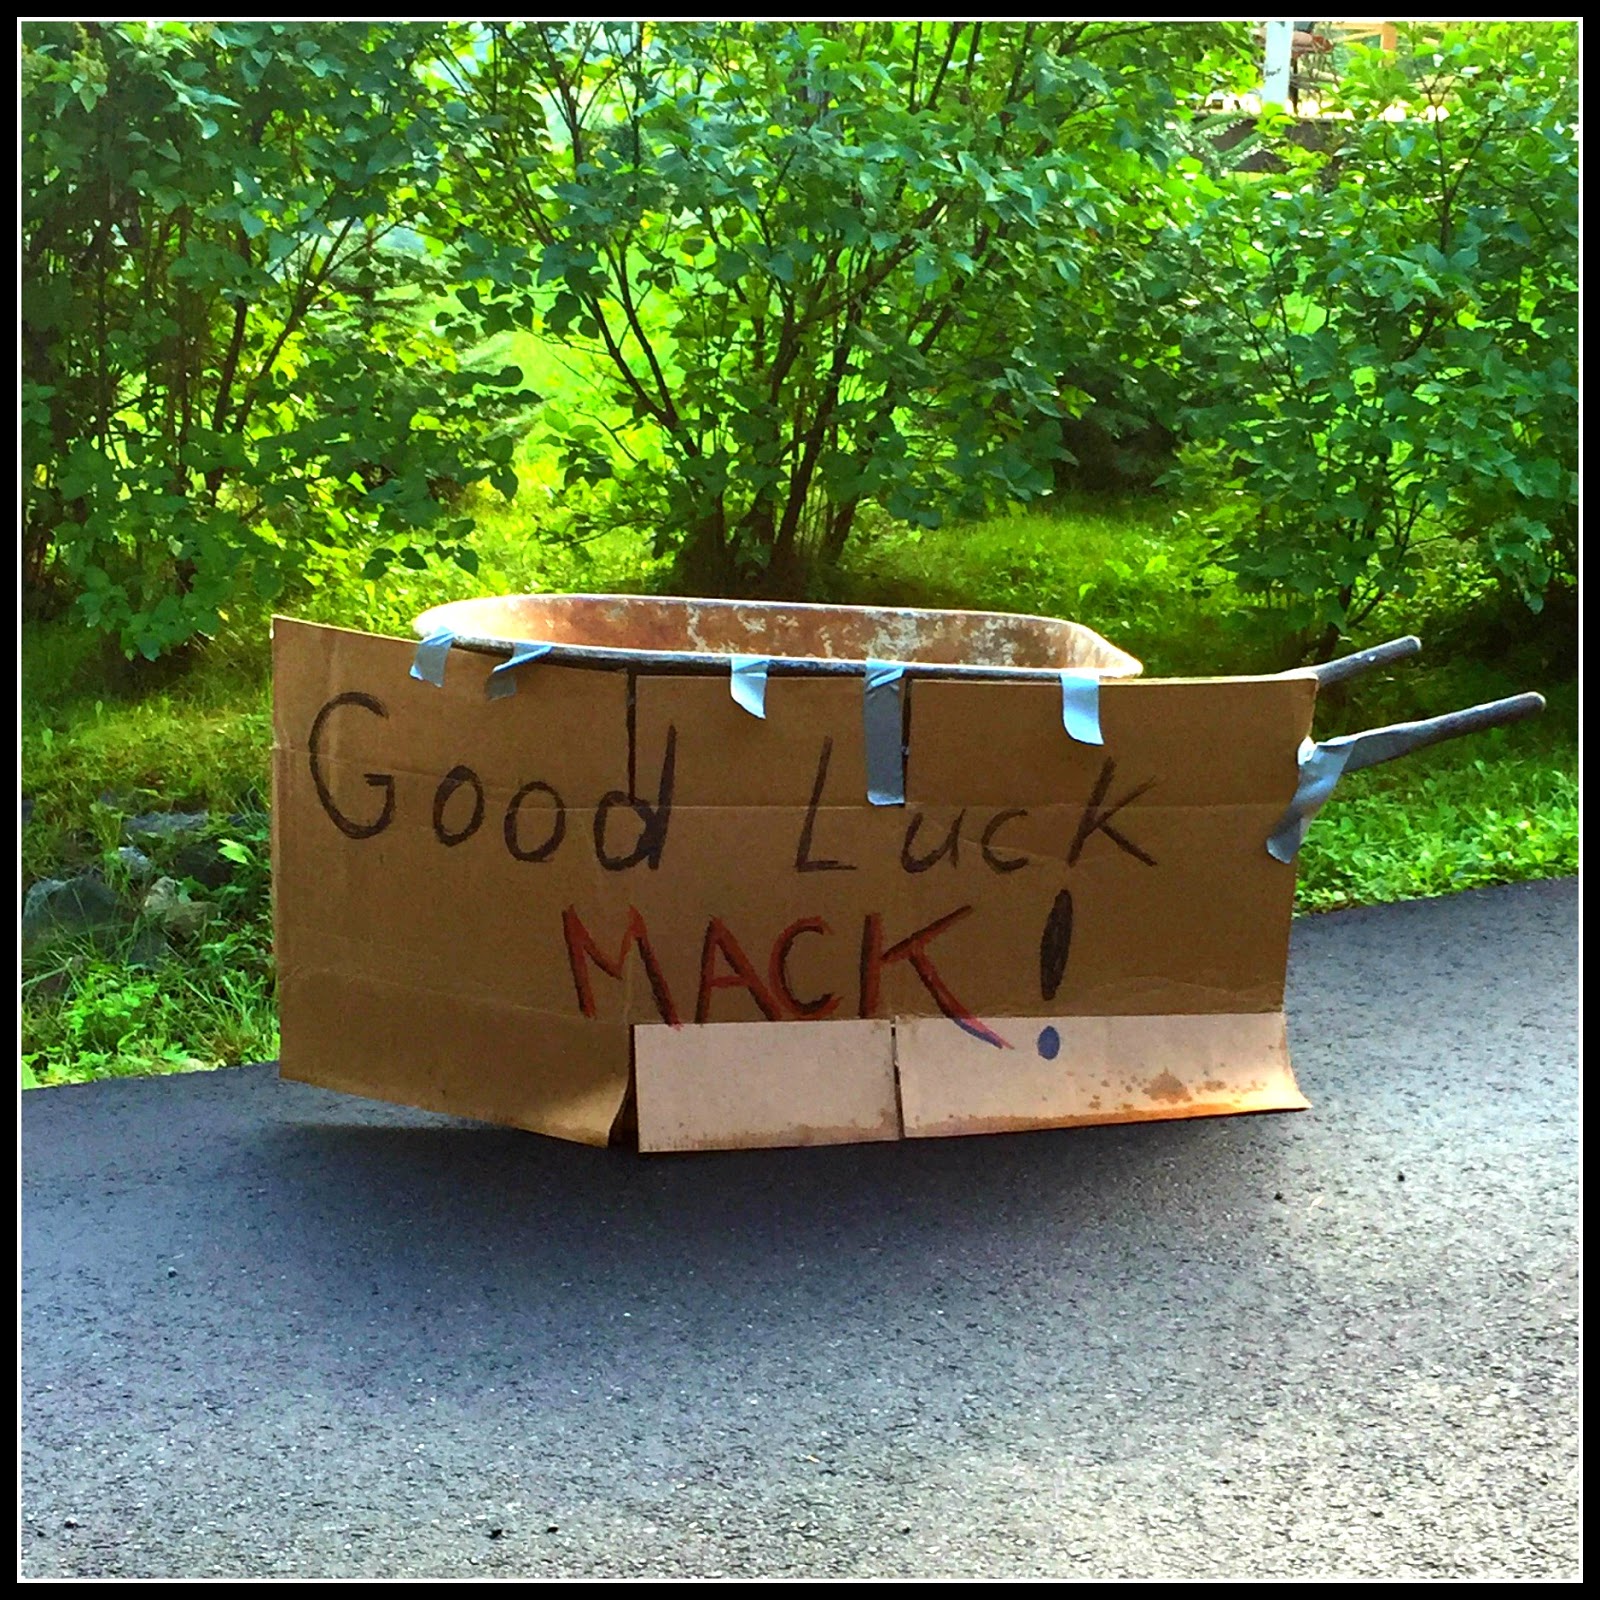 Good Luck
MACK!